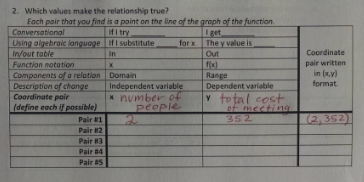 2. Which values make the relationship true?
Each pair that you find is a point on the line of the graph of the function.
Conversational If I try ______ I get ______
Using algebraic language If I substitute ______ for x The y value is ______
In/out table In Out
Function notation x f(x)
Components of a relation Domain Range
Description of change Independent variable Dependent variable
Coordinate pair written in (x,y) format.
Coordinate pair (define each if possible) x number of people y total cost of meeting
Pair #1 2 352 (2,352)
Pair #2
Pair #3
Pair #4
Pair #5